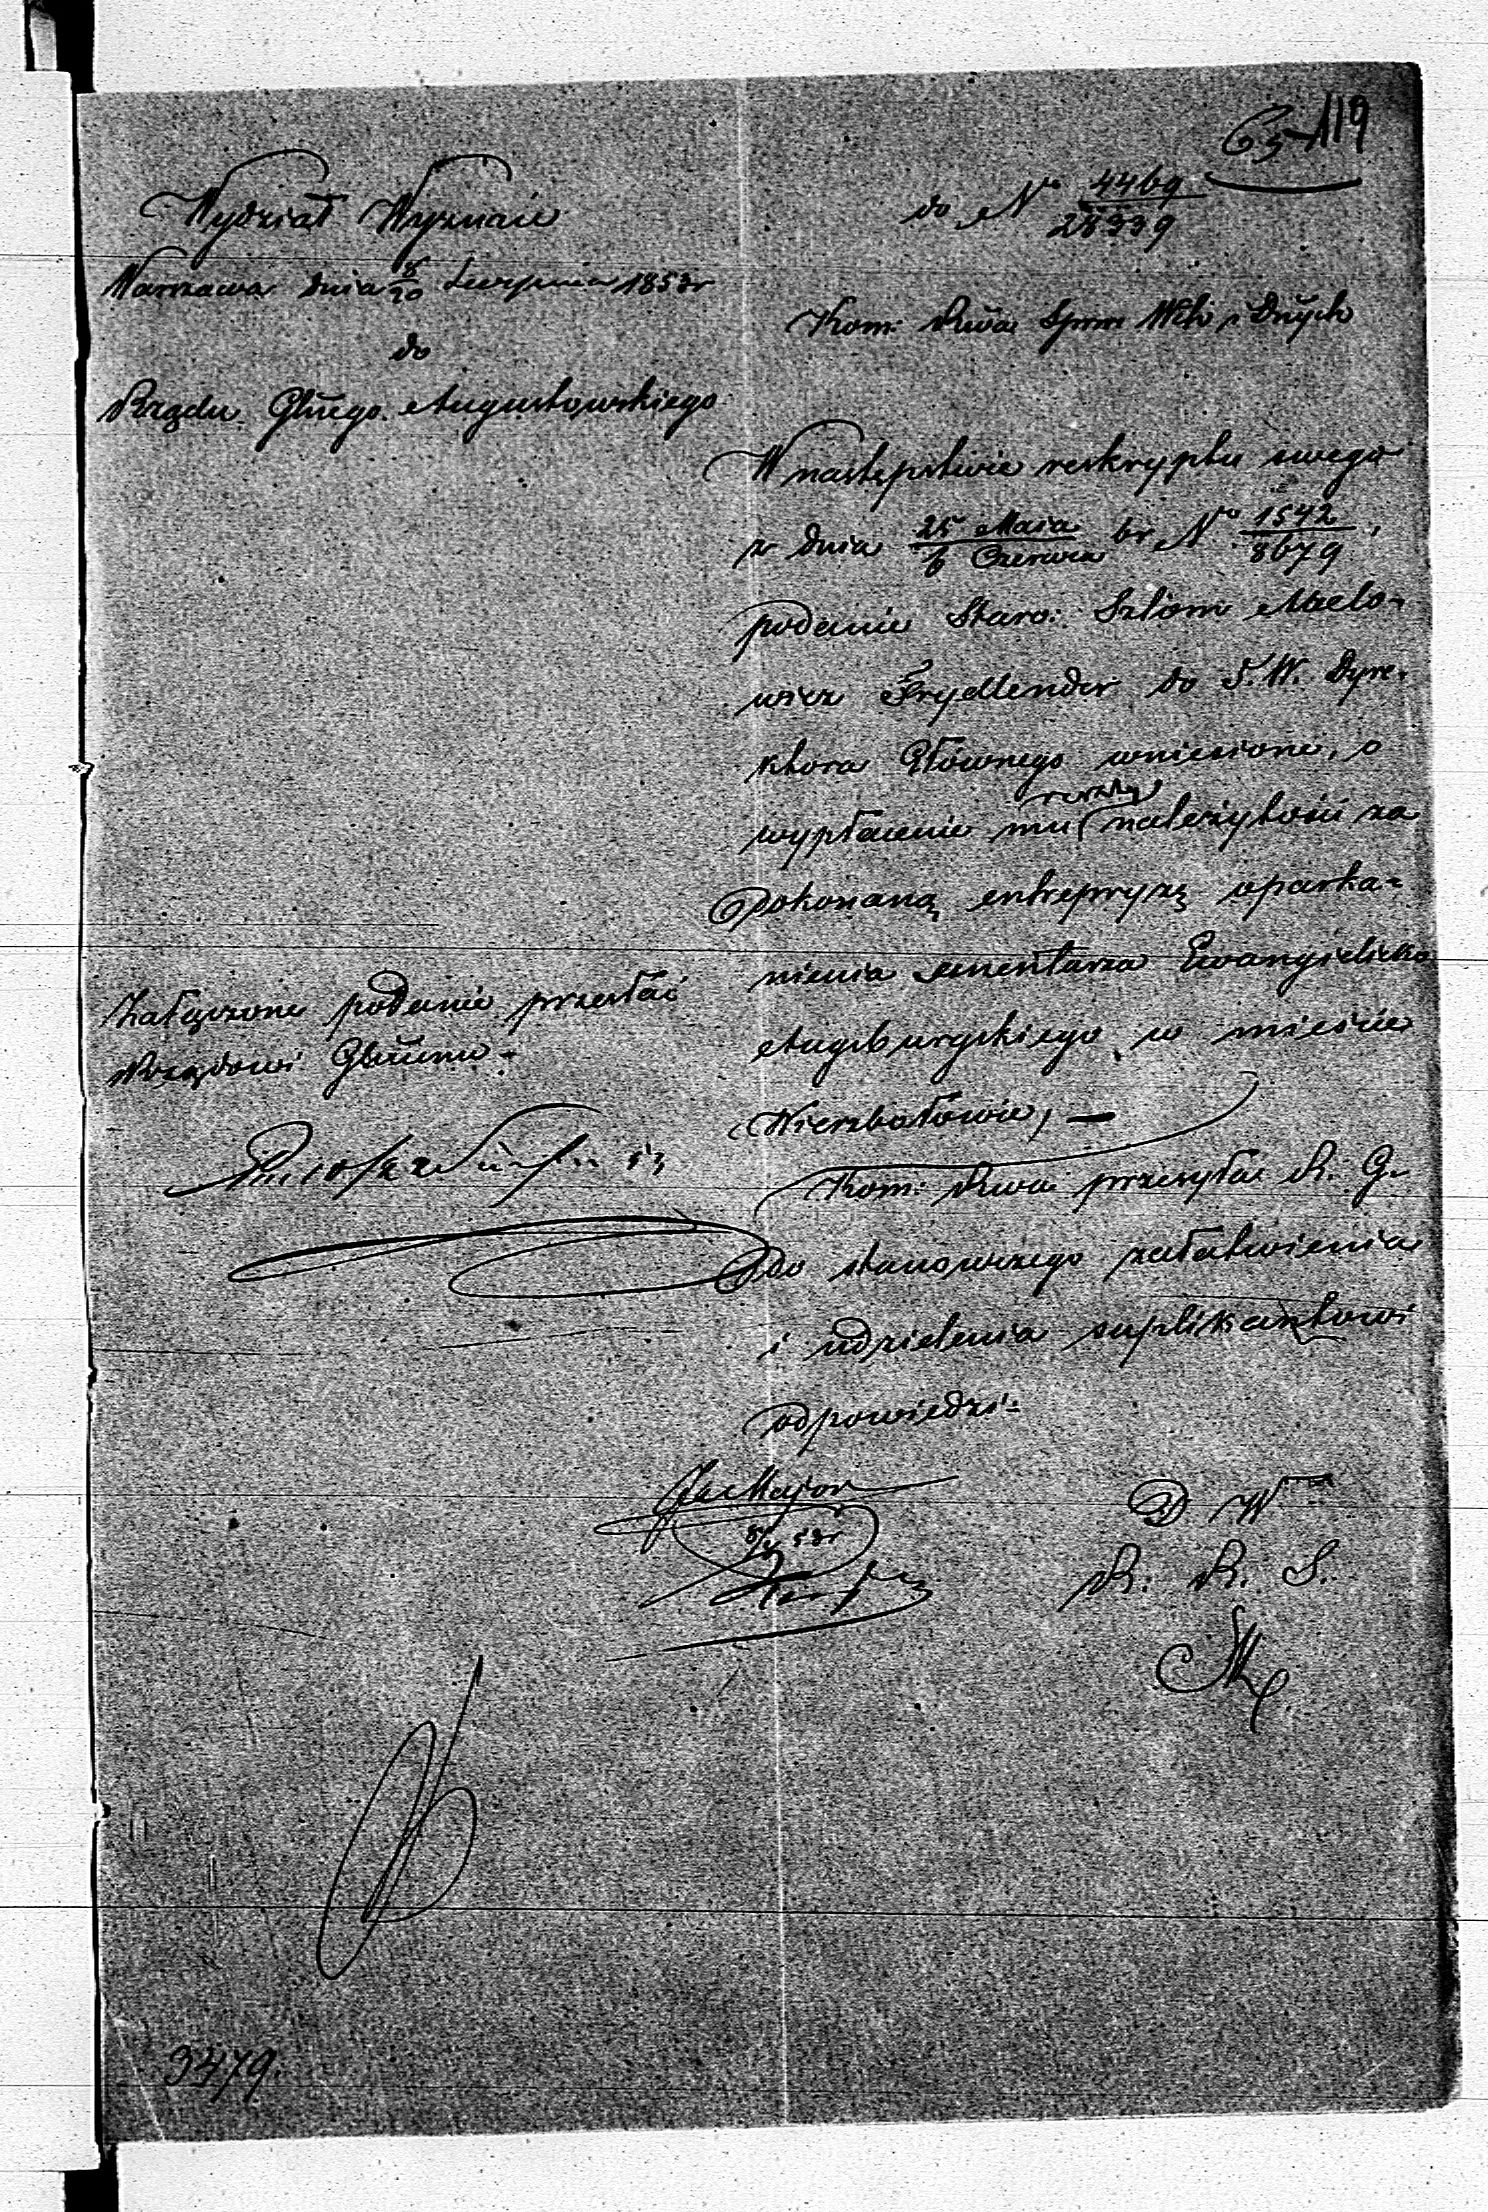 65 119
do No 4469/28339
Wydział Wyznań
Warszawa dnia 8/20 Sierpnia 1853 r
do
Rządu Głnego Augustowskiego
Kom: Rwa Spraw Wch i Dnych
W następstwie reskryptu swego
z dnia 25 Maia/6 Czerwca br No 1542/8679,
podanie Staro: Szlom Maelo-
wicz Frydlender do J.W. Dyre-
ktora Głównego wniesione, o
wypłacenie mu reszty należytości za
dokonaną entrepryzę oparka=
nienia cmentarza Ewangielicko
Augsburgskiego w mieście
Wierzbołowie, —
Kom: Rwa przesyła R. G.
do stanowczego załatwienia
i udzielenia suplikantowi
odpowiedzi=
Załączone podanie przesłać
Rządowi Głnemu=
53
Major
8/ 53 r
D W
R. R. S.
3479.